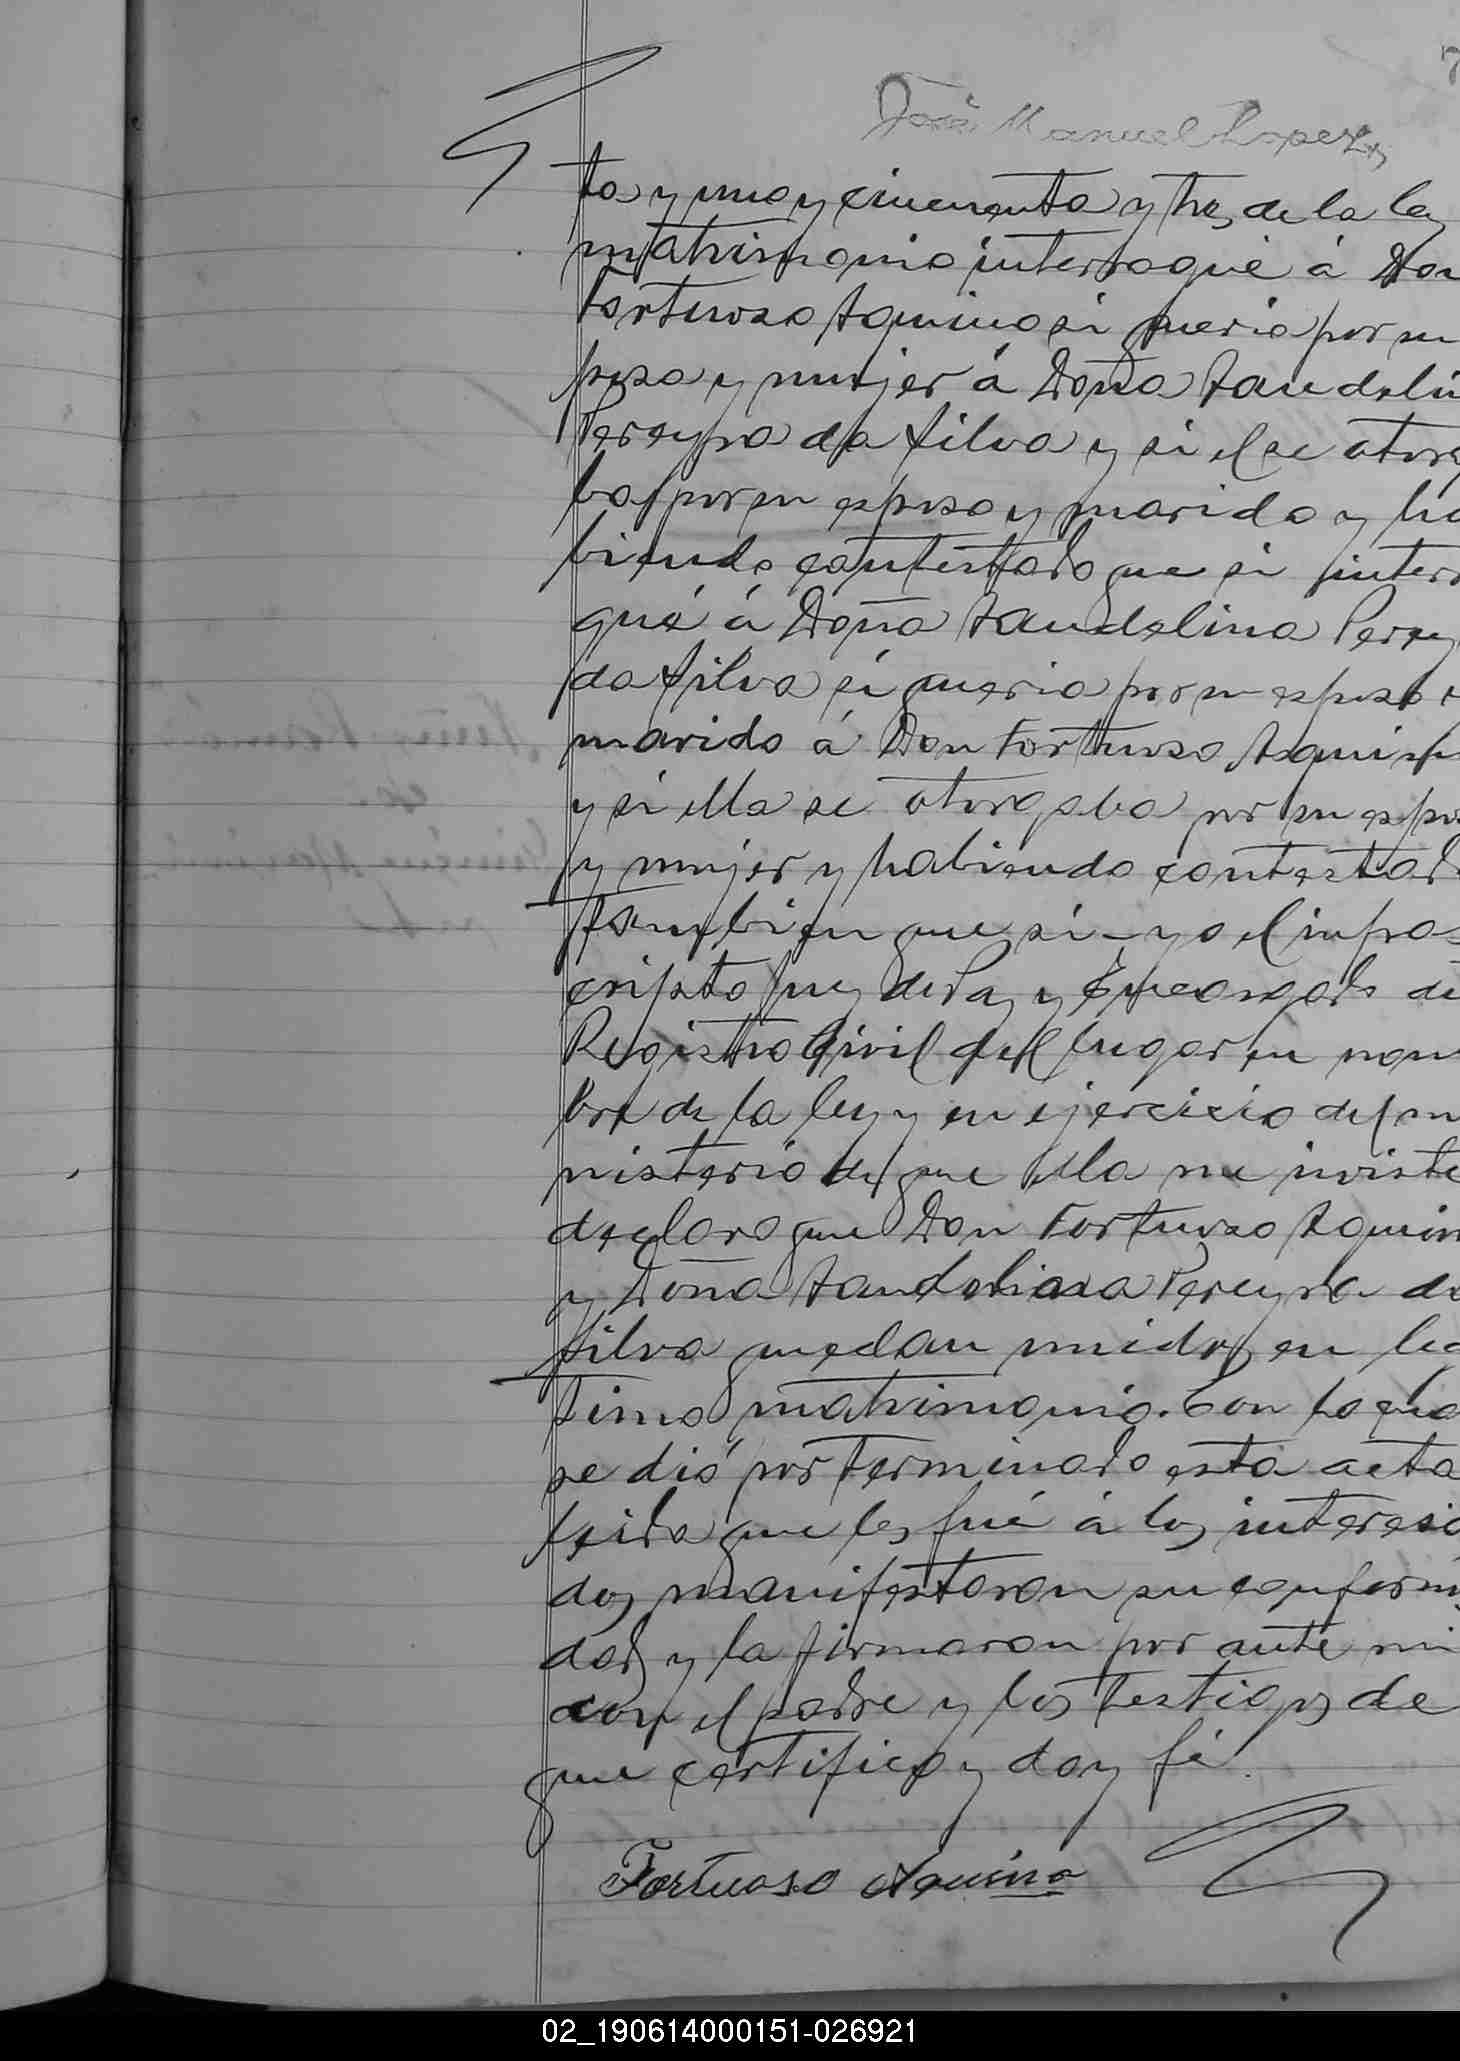 7
José Manuel Lopez
ta y uno y cincuenta y tres de la ley
matrimonio interrogué á Don
Fortuoso Aquino si queria por su
posa y mujer á Doña Sandeli
Pereyra da Silva y si el se otorg
ba por su esposo y marido y ha
biendo contestado que si inter
qué á Doña Sandelina Perey
da Silva si queria por su esposo
marido á Don Fortuoso Aquin
y si ella se otorgaba por su espo
y mujer y habiendo contestado
tambien que si - yo el infras
cripto Juez de Paz y Encargado de
Registro Civil del lugar en nom
bre de la ley y en ejercicio del m
nisterio de que ella me inviste
declaro que Don Fortuoso Aquin
y Doña Sandelina Pereyra da
Silva quedan unidos en leg
timo matrimonio. Con lo que
se dió por terminado esta acta
leida que les fué á los interesa
dos manifestaron su conformi
dad y la firmaron por ante mi
con el padre y los testigos de
que certifico y doy fé.
Fortuoso Aquino
02_190614000151-026921